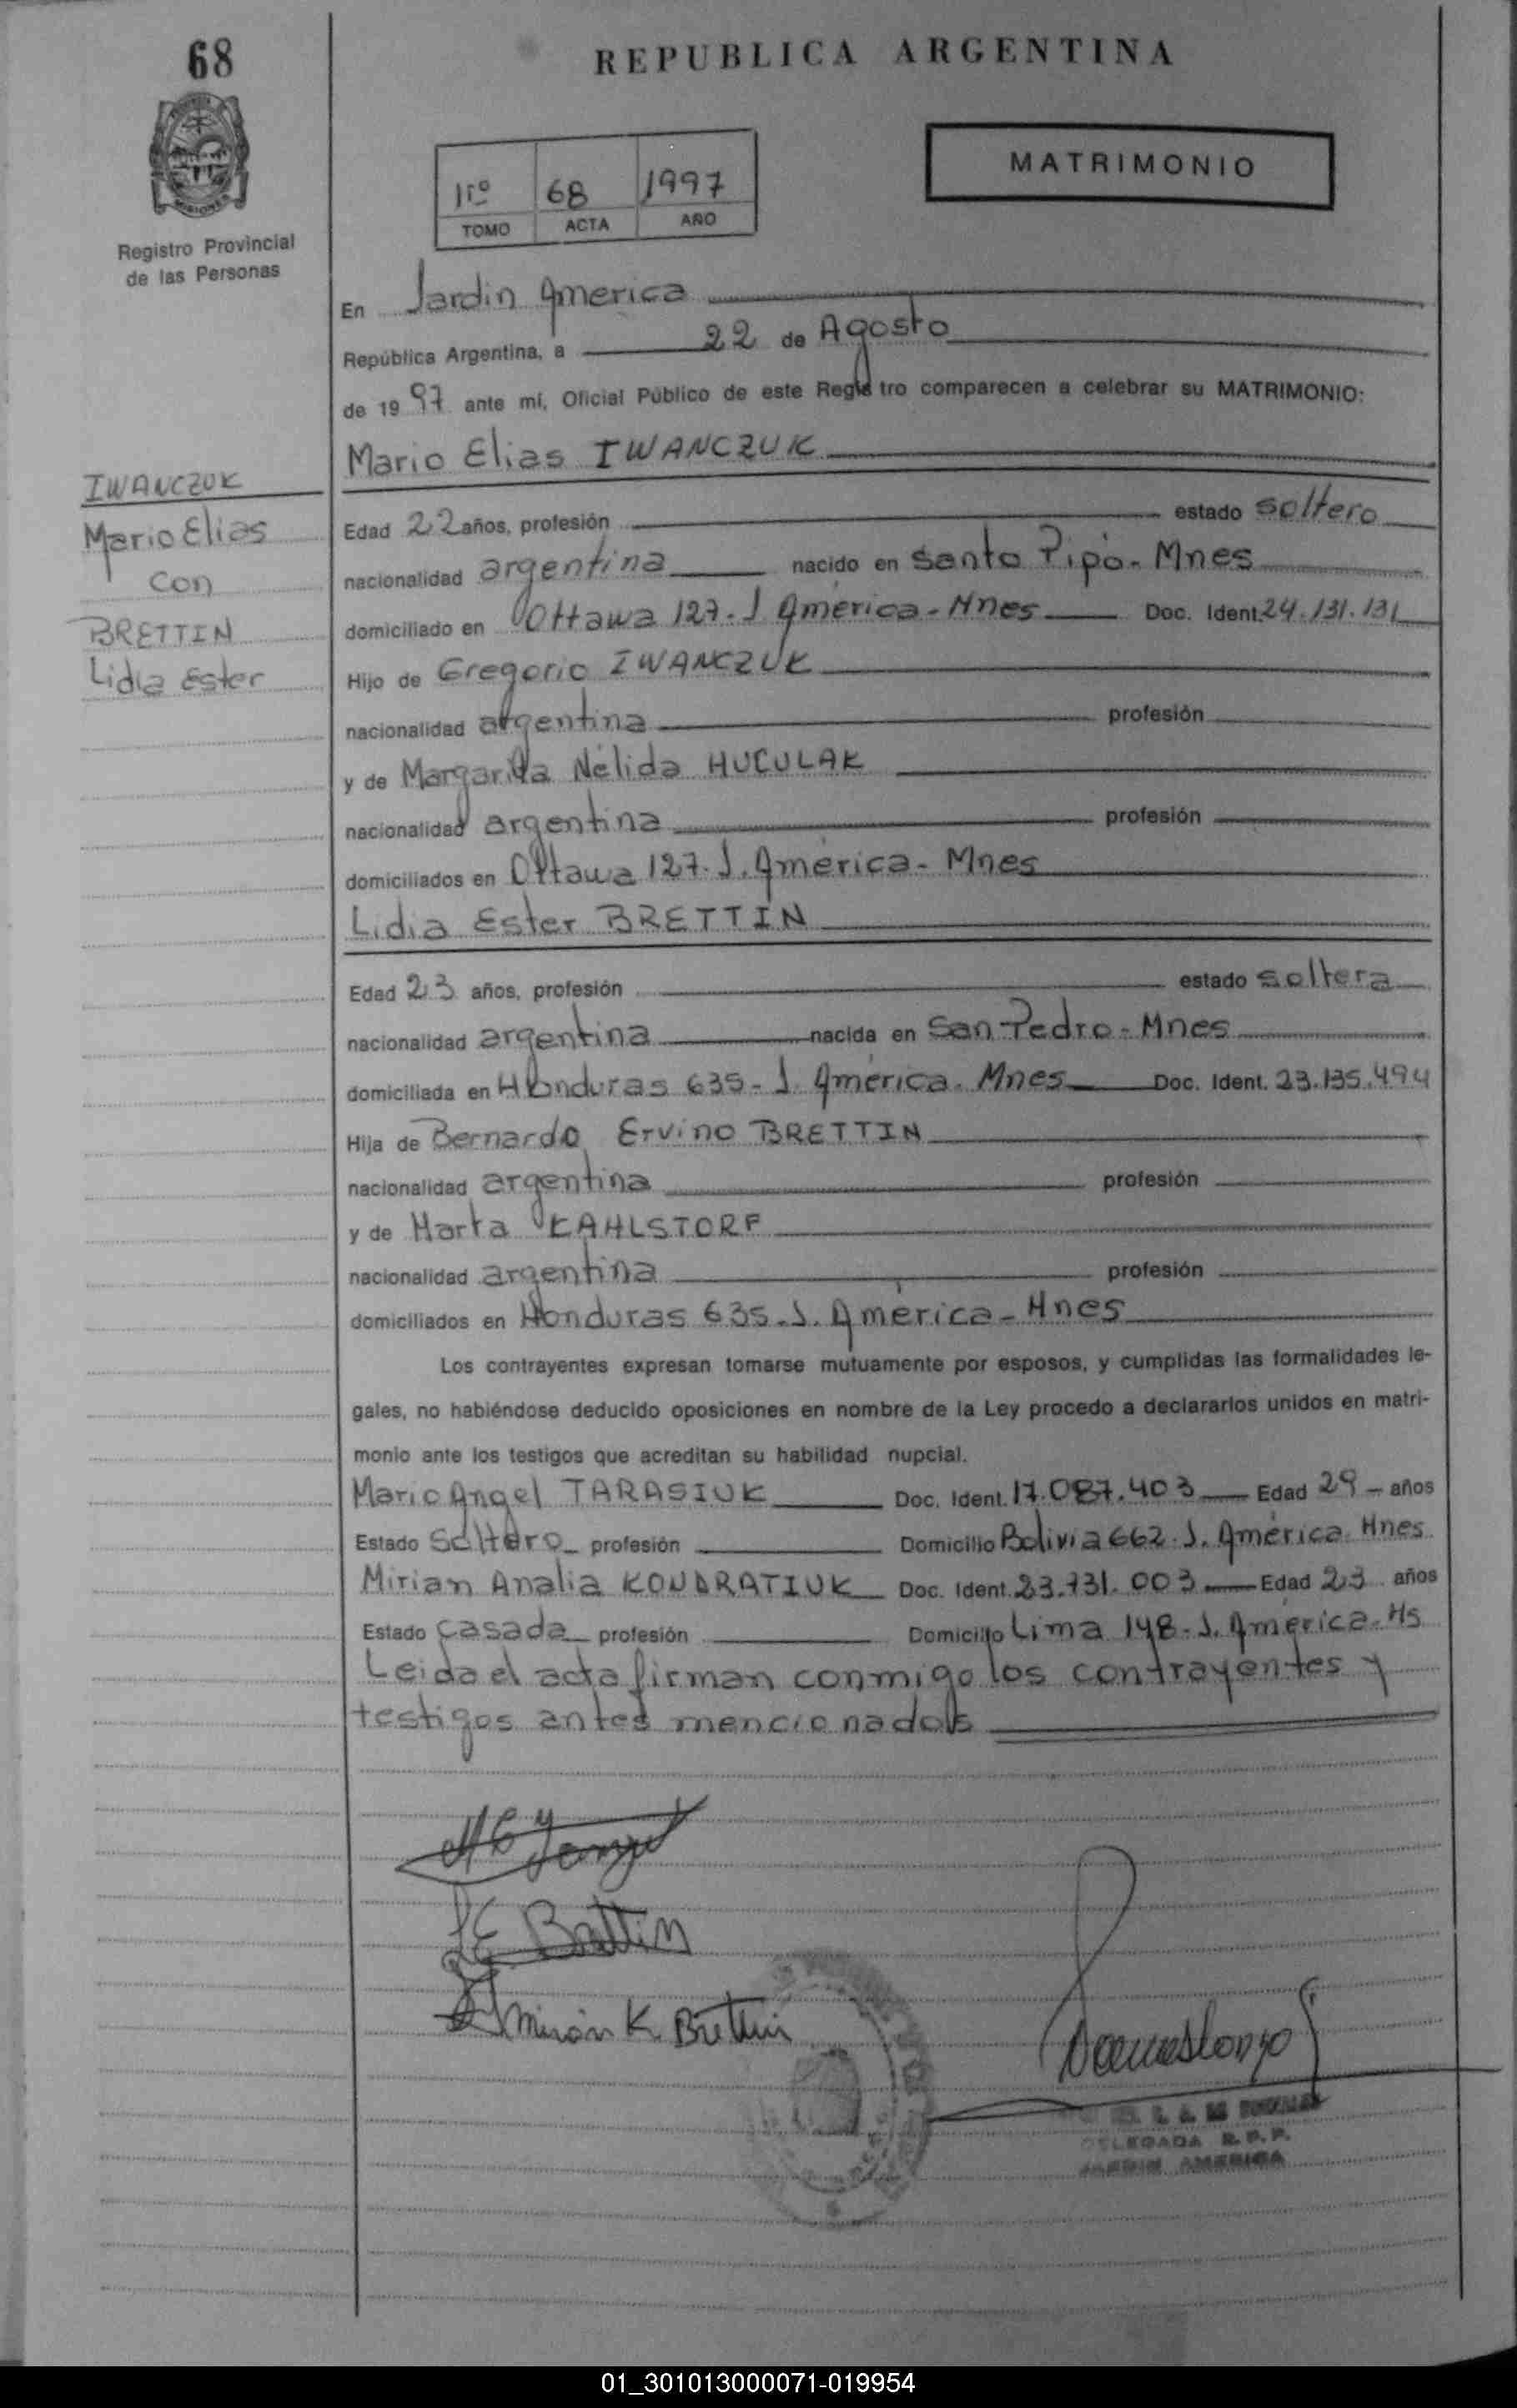 68
REPUBLICA ARGENTINA
MISIONES
Registro Provincial
de las Personas
1º 68 1997
TOMO ACTA AÑO
MATRIMONIO
En Jardin America
República Argentina, a 22 de Agosto
de 1997 ante mí, Oficial Público de este Registro comparecen a celebrar su MATRIMONIO:
Mario Elias IWANCZUK
IWANCZUK
Mario Elias
con
BRETTIN
Lidia Ester
Edad 22 años, profesión estado soltero
nacionalidad argentina nacido en Santo Pipó - Mnes
domiciliado en Ottawa 127. J América - Mnes Doc. Ident. 24.131.131
Hijo de Gregorio IWANCZUK
nacionalidad argentina profesión
y de Margarita Nélida HUCULAK
nacionalidad argentina profesión
domiciliados en Ottawa 127. J. América - Mnes
Lidia Ester BRETTIN
Edad 23 años, profesión estado soltera
nacionalidad argentina nacida en San Pedro - Mnes
domiciliada en Honduras 635 - J. América. Mnes Doc. Ident. 23.135.494
Hija de Bernardo Ervino BRETTIN
nacionalidad argentina profesión
y de Marta KAHLSTORF
nacionalidad argentina profesión
domiciliados en Honduras 635. J. América - Mnes
Los contrayentes expresan tomarse mutuamente por esposos, y cumplidas las formalidades le-
gales, no habiéndose deducido oposiciones en nombre de la Ley procedo a declararlos unidos en matri-
monio ante los testigos que acreditan su habilidad nupcial.
Mario Angel TARASIUK Doc. Ident. 17.087.403 Edad 29 - años
Estado Soltero profesión Domicilio Bolivia 662. J. América. Mnes
Mirian Analia KONDRATIUK Doc. Ident. 23.731.003 Edad 23 años
Estado casada profesión Domicilio Lima 148 - J. América. Ms
Leida el acta firman conmigo los contrayentes y
testigos antes mencionados
L E Brettin
Mirian K. Brettin
DELEGADA R.P.P.
JARDIN AMERICA
01_301013000071-019954